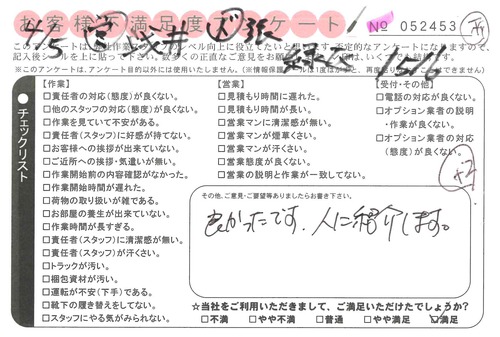 お客様不満足度アンケート
№ 052453
このアンケートは
記入後シールを上に貼って下さい。数多くの正直なご意見をお
※このアンケートは、アンケート目的以外には使用いたしません。
チェックリスト
【作業】
□責任者の対応（態度）が良くない。
□他のスタッフの対応（態度）が良くない。
□作業を見ていて不安がある。
□責任者（スタッフ）に好感が持てない。
□お客様への挨拶が出来ていない。
□ご近所への挨拶・気遣いが無い。
□作業開始前の内容確認がなかった。
□作業開始時間が遅れた。
□荷物の取り扱いが雑である。
□お部屋の養生が出来ていない。
□作業時間が長すぎる。
□責任者（スタッフ）に清潔感が無い。
□責任者（スタッフ）が汗くさい。
□トラックが汚い。
□梱包資材が汚い。
□運転が不安（下手）である。
□靴下の履き替えをしてない。
□スタッフにやる気がみられない。
【営業】
□見積もり時間に遅れた。
□見積もり時間が長い。
□営業マンに清潔感が無い。
□営業マンが煙草くさい。
□営業マンが汗くさい。
□営業態度が良くない。
□営業の説明と作業が一致してない。
【受付・その他】
□電話の対応が良くない。
□オプション業者の説明
・作業が良くない。
□オプション業者の対応
（態度）が良くない。
その他、ご意見・ご要望等ありましたらお書き下さい。
良かったです。人に紹介します。
☆当社をご利用いただきまして、ご満足いただけたでしょうか?
□不満 □やや不満 □普通 □やや満足 ☑満足